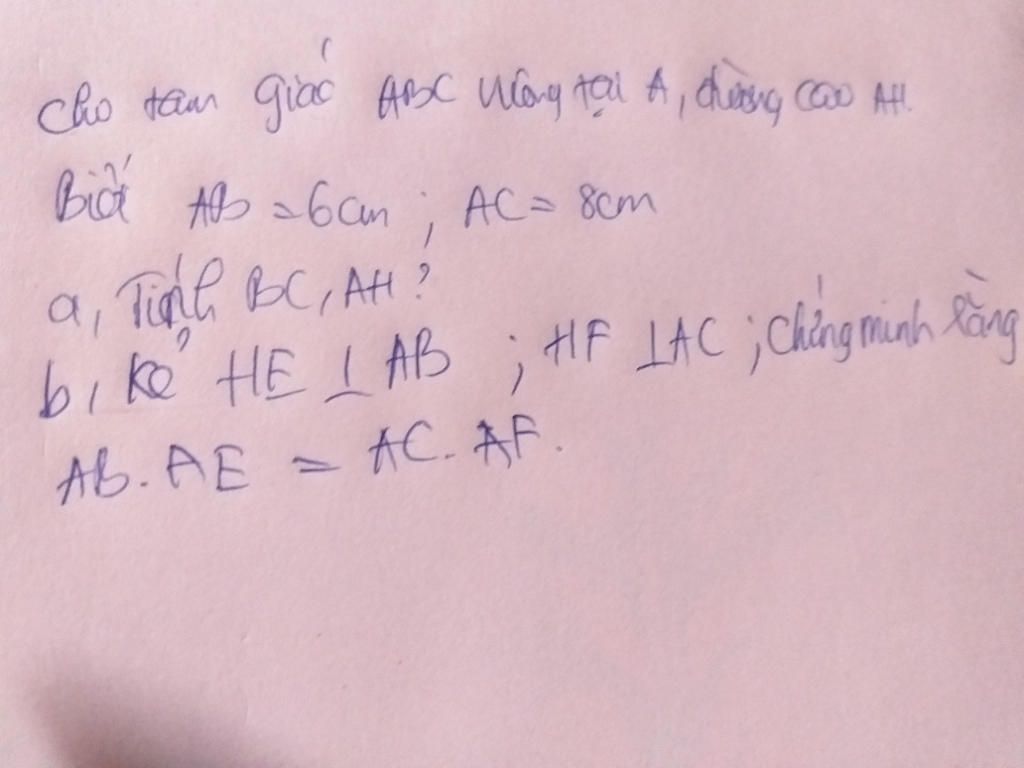 Cho tam giác ABC vuông tại A, đường cao AH.
Biết AB = 6cm ; AC = 8cm
a, Tính BC, AH ?
b, Kẻ HE ⊥ AB ; HF ⊥ AC ; Chứng minh rằng
AB. AE = AC. AF.